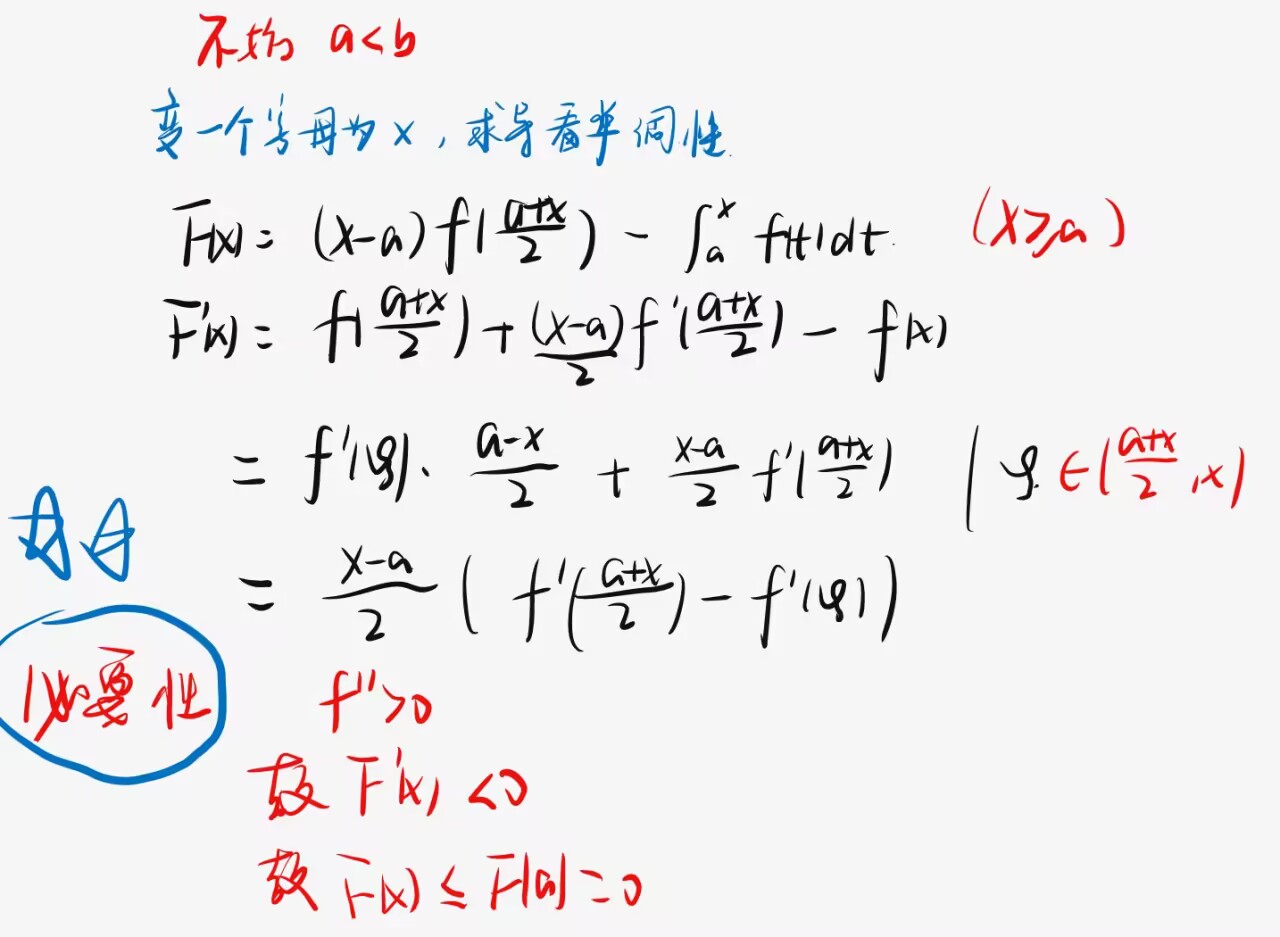 不妨 a<b
变一个字母为x,求导看单调性.
F(x)= (x-a)f(\frac{a+x}{2}) - ∫_a^x f(t)dt. (x≥a)
F'(x)= f(\frac{a+x}{2})+\frac{(x-a)}{2}f'(\frac{a+x}{2}) - f(x)
= f'(φ)·\frac{a-x}{2} + \frac{x-a}{2}f'(\frac{a+x}{2}) | φ.∈(\frac{a+x}{2},x)
= \frac{x-a}{2}(f'(\frac{a+x}{2})-f'(φ))
必要性
f''>0
故 F'(x)<0
故 F(x)≤F(a)=0